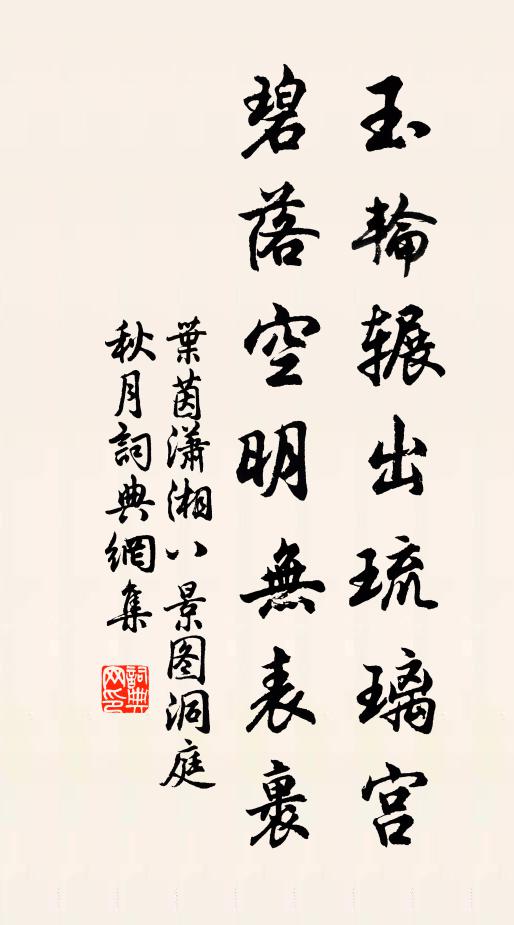 玉輪辗出琉璃宫
碧落空明無表裏
葉茵瀟湘八景图洞庭
秋月詞典網集
詞典
网印